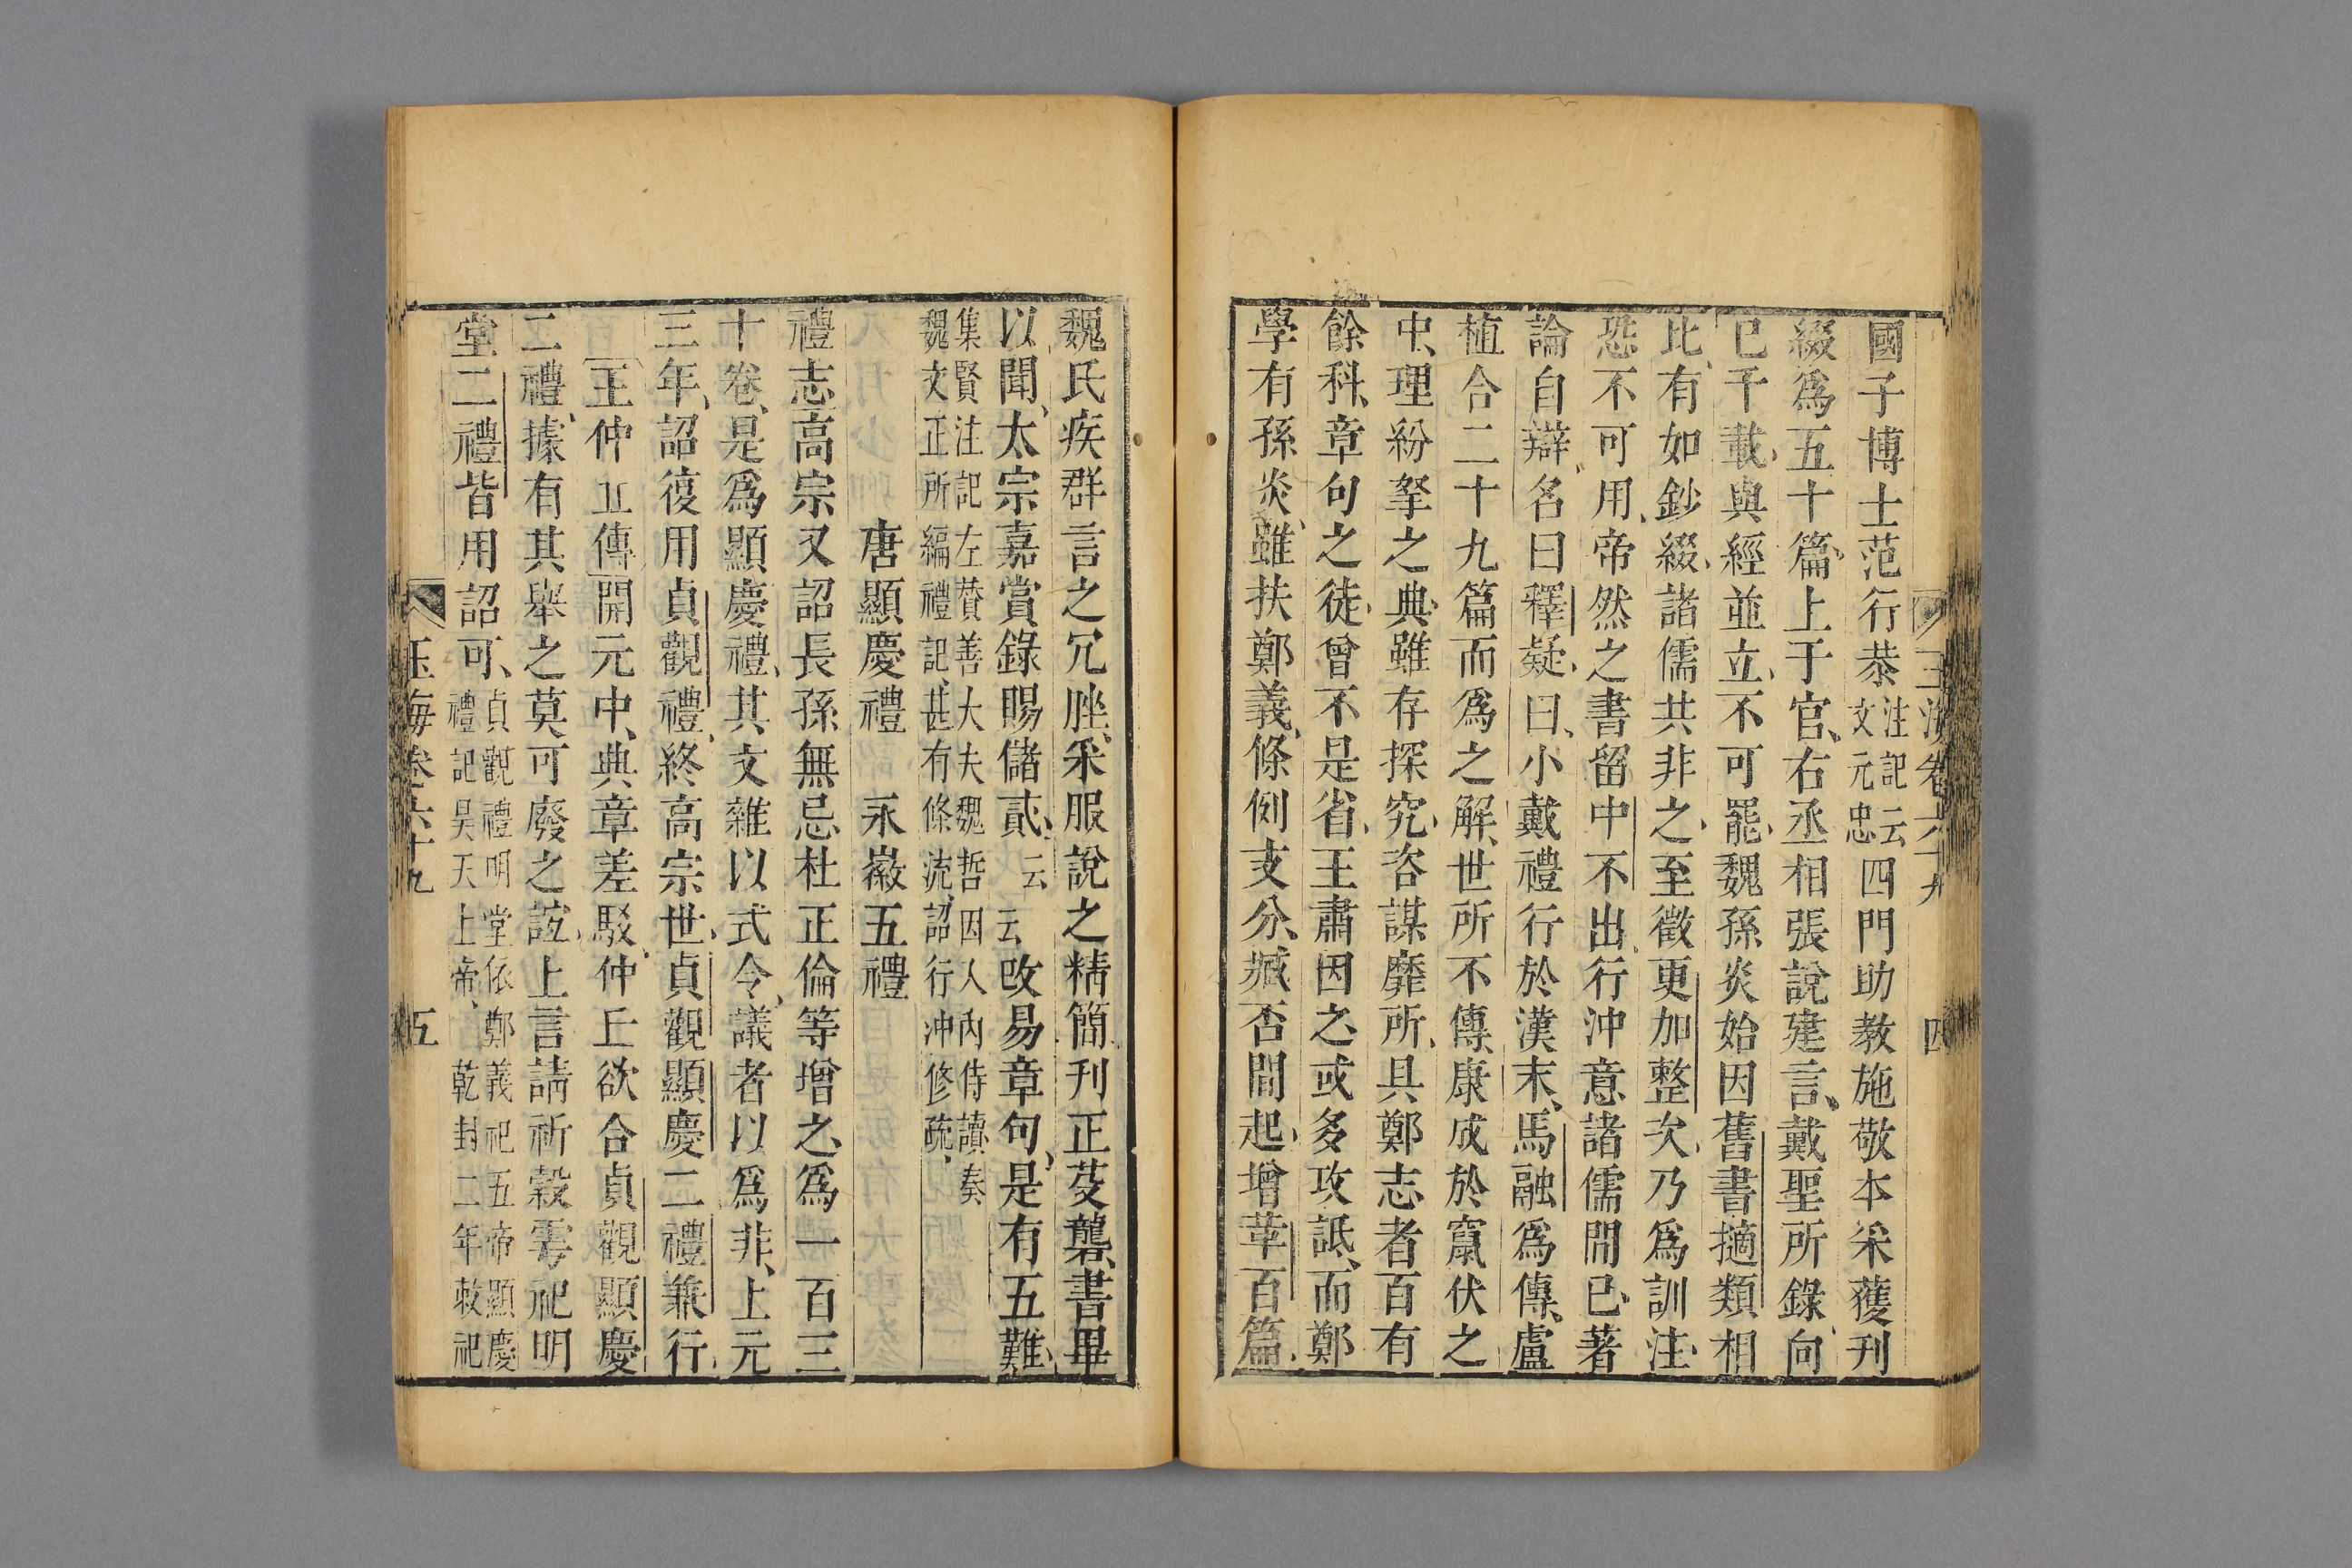 玉海卷六十九 四
國子博士范行恭注記云文元忠四門助教施敬本采獲刊
綴爲五十篇上于官右丞相張說建言戴聖所錄向
已千載與經並立不可罷魏孫炎始因舊書擿類相
比有如鈔綴諸儒共非之至徵更加整次乃爲訓注
恐不可用帝然之書留中不出行沖意諸儒間已著
論自辯名曰釋疑曰小戴禮行於漢末馬融爲傳盧
植合二十九篇而爲之解世所不傳康成於竄伏之
中理紛拏之典雖存探究咨謀靡所具鄭志者百有
餘科章句之徒曾不是省王肅因之或多攻詆而鄭
學有孫炎雖扶鄭義條例支分臧否間起增革百篇
魏氏疾群言之冗脞采服說之精簡刊正芟礱書畢
以聞太宗嘉賞錄賜儲貳云云改易章句是有五難
集賢注記左贊善大夫魏哲因人內侍讀奏
魏文正所編禮記甚有條流詔行沖修疏
唐顯慶禮 永徽五禮
禮志高宗又詔長孫無忌杜正倫等增之爲一百三
十卷是爲顯慶禮其文雜以式令議者以爲非上元
三年詔復用貞觀禮終高宗世貞觀顯慶二禮兼行
王仲丘傳開元中典章差駁仲丘欲合貞觀顯慶
二禮據有其舉之莫可廢之誼上言請祈穀雩祀明
堂二禮皆用詔可貞觀禮明堂依鄭義祀五帝顯慶
禮記昊天上帝 乾封二年敕祀
玉海卷六十九 五